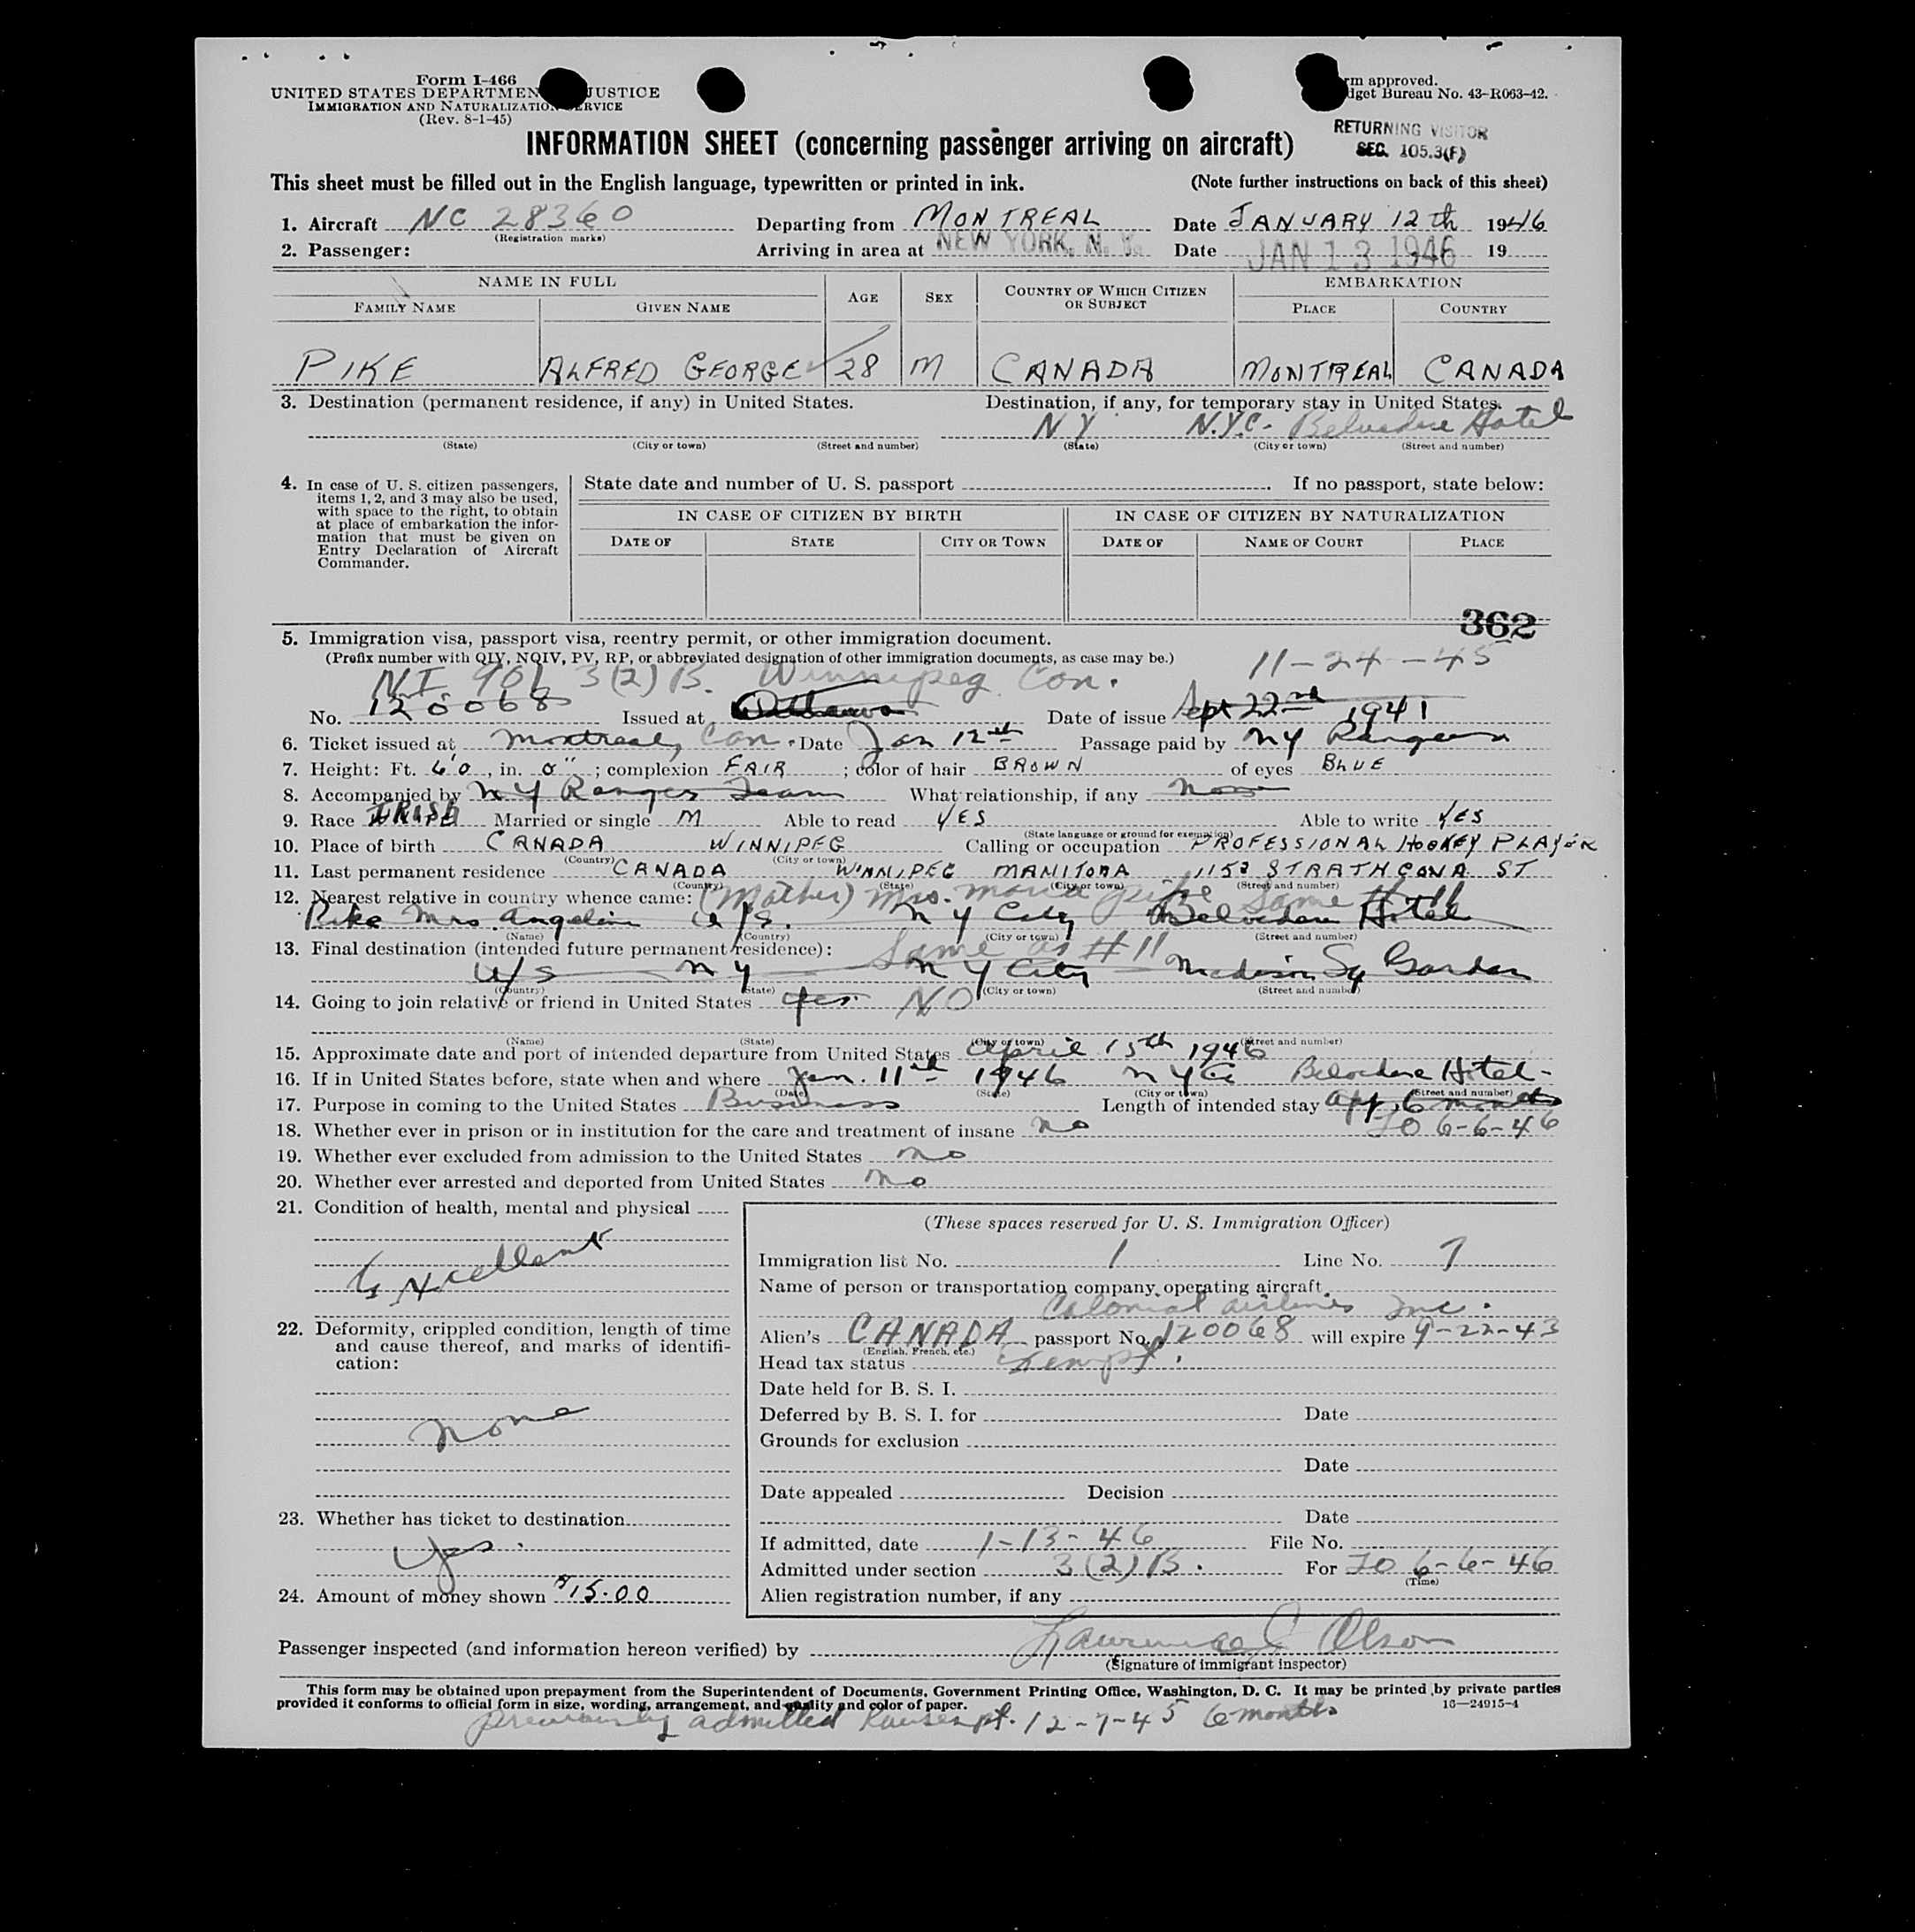 Form I-466
UNITED STATES DEPARTMEN JUSTICE
IMMIGRATION AND NATURALIZATION SERVICE
(Rev. 8-1-45)
rm approved.
dget Bureau No. 43-R063-42.
INFORMATION SHEET (concerning passenger arriving on aircraft)
RETURNING VISITOR
SEC. 105.3(F)
This sheet must be filled out in the English language, typewritten or printed in ink. (Note further instructions on back of this sheet)
1. Aircraft NC 28360 Departing from MONTREAL Date JANUARY 12th 1946
(Registration marks)
2. Passenger: Arriving in area at NEW YORK, N. Y. Date JAN 13 1946 19
NAME IN FULL AGE SEX COUNTRY OF WHICH CITIZEN OR SUBJECT EMBARKATION
FAMILY NAME GIVEN NAME PLACE COUNTRY
PIKE ALFRED GEORGE 28 M CANADA MONTREAL CANADA
3. Destination (permanent residence, if any) in United States. Destination, if any, for temporary stay in United States.
NY N.Y.C. Belvedere Hotel
(State) (City or town) (Street and number) (State) (City or town) (Street and number)
4. In case of U. S. citizen passengers,
items 1, 2, and 3 may also be used,
with space to the right, to obtain
at place of embarkation the infor-
mation that must be given on
Entry Declaration of Aircraft
Commander.
State date and number of U. S. passport . If no passport, state below:
IN CASE OF CITIZEN BY BIRTH IN CASE OF CITIZEN BY NATURALIZATION
DATE OF STATE CITY OR TOWN DATE OF NAME OF COURT PLACE
362
5. Immigration visa, passport visa, reentry permit, or other immigration document.
(Prefix number with QIV, NQIV, PV, RP, or abbreviated designation of other immigration documents, as case may be.)
NI 901 3(2)B. Winnipeg Can. 11-24-45
No. 120068 Issued at Ottawa Date of issue Sept 22nd 1941
6. Ticket issued at Montreal, Can. Date Jan 12th Passage paid by NY Rangers
7. Height: Ft. 6'0, in. 0"; complexion FAIR; color of hair BROWN of eyes BLUE
8. Accompanied by NY Ranger Team What relationship, if any None
9. Race IRISH Married or single M Able to read YES Able to write YES
(State language or ground for exemption)
10. Place of birth CANADA WINNIPEG Calling or occupation PROFESSIONAL HOCKEY PLAYER
(Country) (City or town)
11. Last permanent residence CANADA WINNIPEG MANITOBA 1153 STRATHCONA ST
(Country) (State) (City or town) (Street and number)
12. Nearest relative in country whence came: (Mother) Mrs. Maria Pike Same #11
Pike Mrs. Angelin U/S. N Y City Belvedere Hotel
(Name) (Country) (City or town) (Street and number)
13. Final destination (intended future permanent residence): Same as #11
U/S N Y N Y City Madison Sq Garden
(Country) (State) (City or town) (Street and number)
14. Going to join relative or friend in United States yes NO
(Name) (State) (City or town) (Street and number)
15. Approximate date and port of intended departure from United States April 15th 1946
16. If in United States before, state when and where Jan. 11th 1946 NYC Belvedere Hotel-
(Date) (State) (City or town) (Street and number)
17. Purpose in coming to the United States Business Length of intended stay app. 6 months
18. Whether ever in prison or in institution for the care and treatment of insane no TO 6-6-46
19. Whether ever excluded from admission to the United States no
20. Whether ever arrested and deported from United States no
21. Condition of health, mental and physical
Excellent
22. Deformity, crippled condition, length of time
and cause thereof, and marks of identifi-
cation:
none
23. Whether has ticket to destination
yes.
24. Amount of money shown $15.00
(These spaces reserved for U. S. Immigration Officer)
Immigration list No. 1 Line No. 7
Name of person or transportation company operating aircraft
Colonial Airlines Inc.
Alien's CANADA passport No. 120068 will expire 9-22-43
(English, French, etc.)
Head tax status Exempt.
Date held for B. S. I.
Deferred by B. S. I. for Date
Grounds for exclusion
Date
Date appealed Decision
Date
If admitted, date 1-13-46 File No.
Admitted under section 3(2)B. For TO 6-6-46
(Time)
Alien registration number, if any
Passenger inspected (and information hereon verified) by Lawrence J Olson
(Signature of immigrant inspector)
This form may be obtained upon prepayment from the Superintendent of Documents, Government Printing Office, Washington, D. C. It may be printed by private parties
provided it conforms to official form in size, wording, arrangement, and quality and color of paper. 16—24915-4
previously admitted pt. 12-7-45 6 months